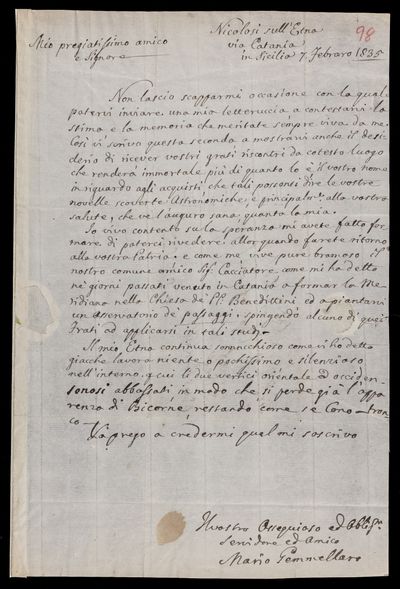 98
Nicolosi sull'Etna
via Catania
in Sicilia 7. Febraro 1835
Mio pregiatissimo amico
e Signore
Non lascio scapparmi occasione con la qual
potervi inviare una mia letteruccia a contestarvi la
stima e la memoria che meritate sempre viva da me.
Così vi scrivo questa seconda a mostrarvi anche il desi-
derio di ricever vostri grati riscontri da cotesto luogo
che renderà immortale più di quanto lo è il vostro nome
in riguardo agli acquisti, che tali possonsi dire le vostre
novelle scoverte Astronomiche, e principalm.e alla vostra
salute, che ve l'auguro sana, quanto la mia.
Io vivo contento su la speranza mi avete fatto for-
mare di poterci rivedere, allor quando farete ritorno
alla vostra Patria, e come me vive pure bramoso il
nostro comune amico Sig. Cacciatore come mi ha detto
ne' giorni passati venuto in Catania a formar la Me-
ridiana nella Chiesa de' PP. Benedittini ed a piantarvi
un osservatorio de' passaggi, spingendo alcuno di quei
Frati ad applicarsi in tali studj.
Il mio Etna continua sonnacchioso come vi ho detto
giacche lavora niente o pochissimo e silenzioso
nell'interno, e cui le due vertici orientale ed occiden-
sonosi abbassati in modo che si perde già l'appa-
renza di Bicorne, restando come se Cono tron-
co.
Va prego a credermi qual mi soscrivo
Il vostro Ossequioso ed Obblig.
Servidore ed Amico
Mario Gemmellaro